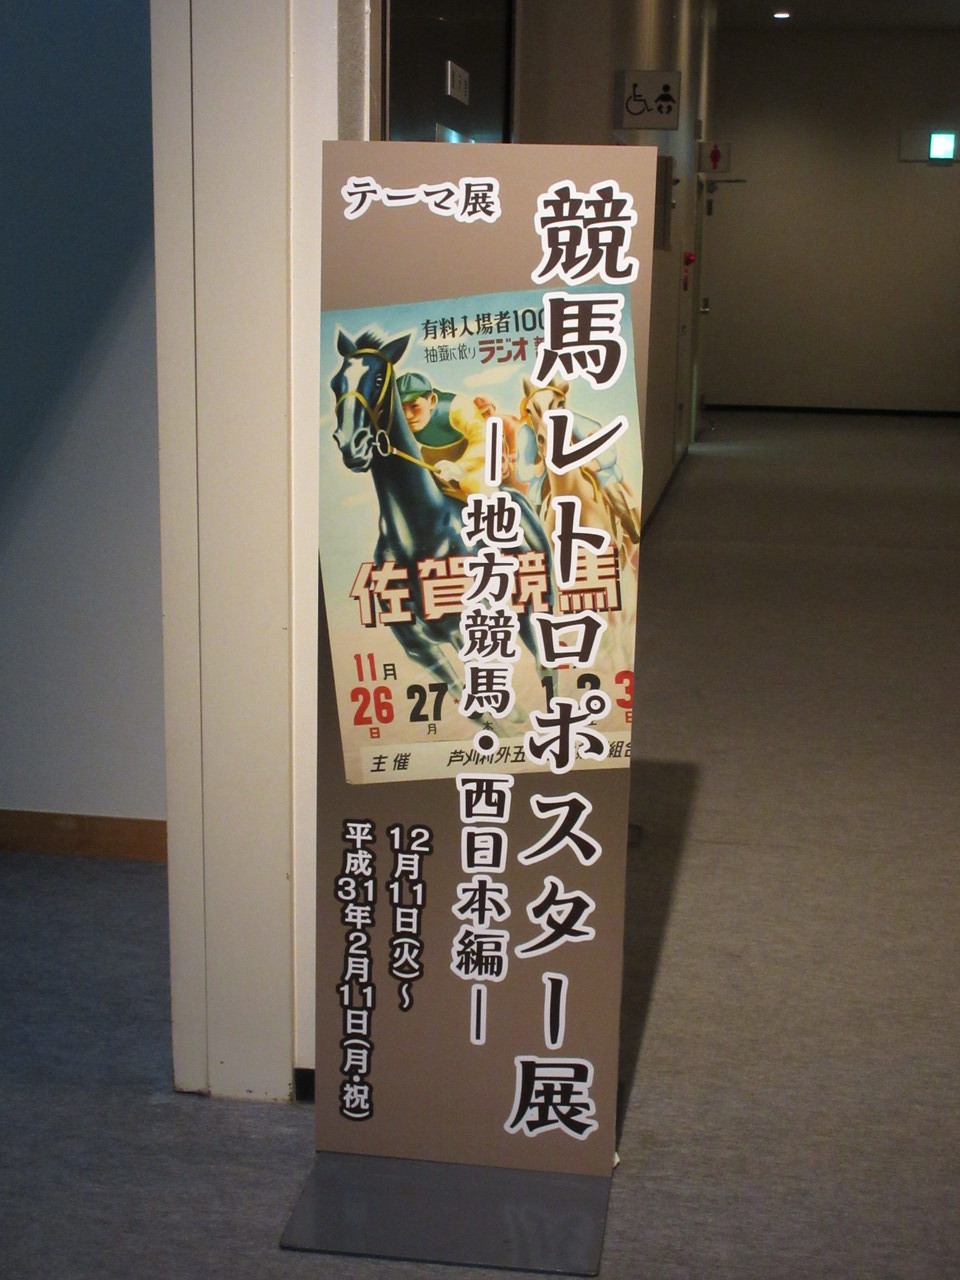 テーマ展
競馬レトロポスター展
―地方競馬・西日本編―
12月11日(火)～
平成31年2月11日(月・祝)
有料入場者100
抽籤に依り ラジオ
佐賀競馬
11月
26日 27月 1 2 3日
主催 芦刈村外五 組合